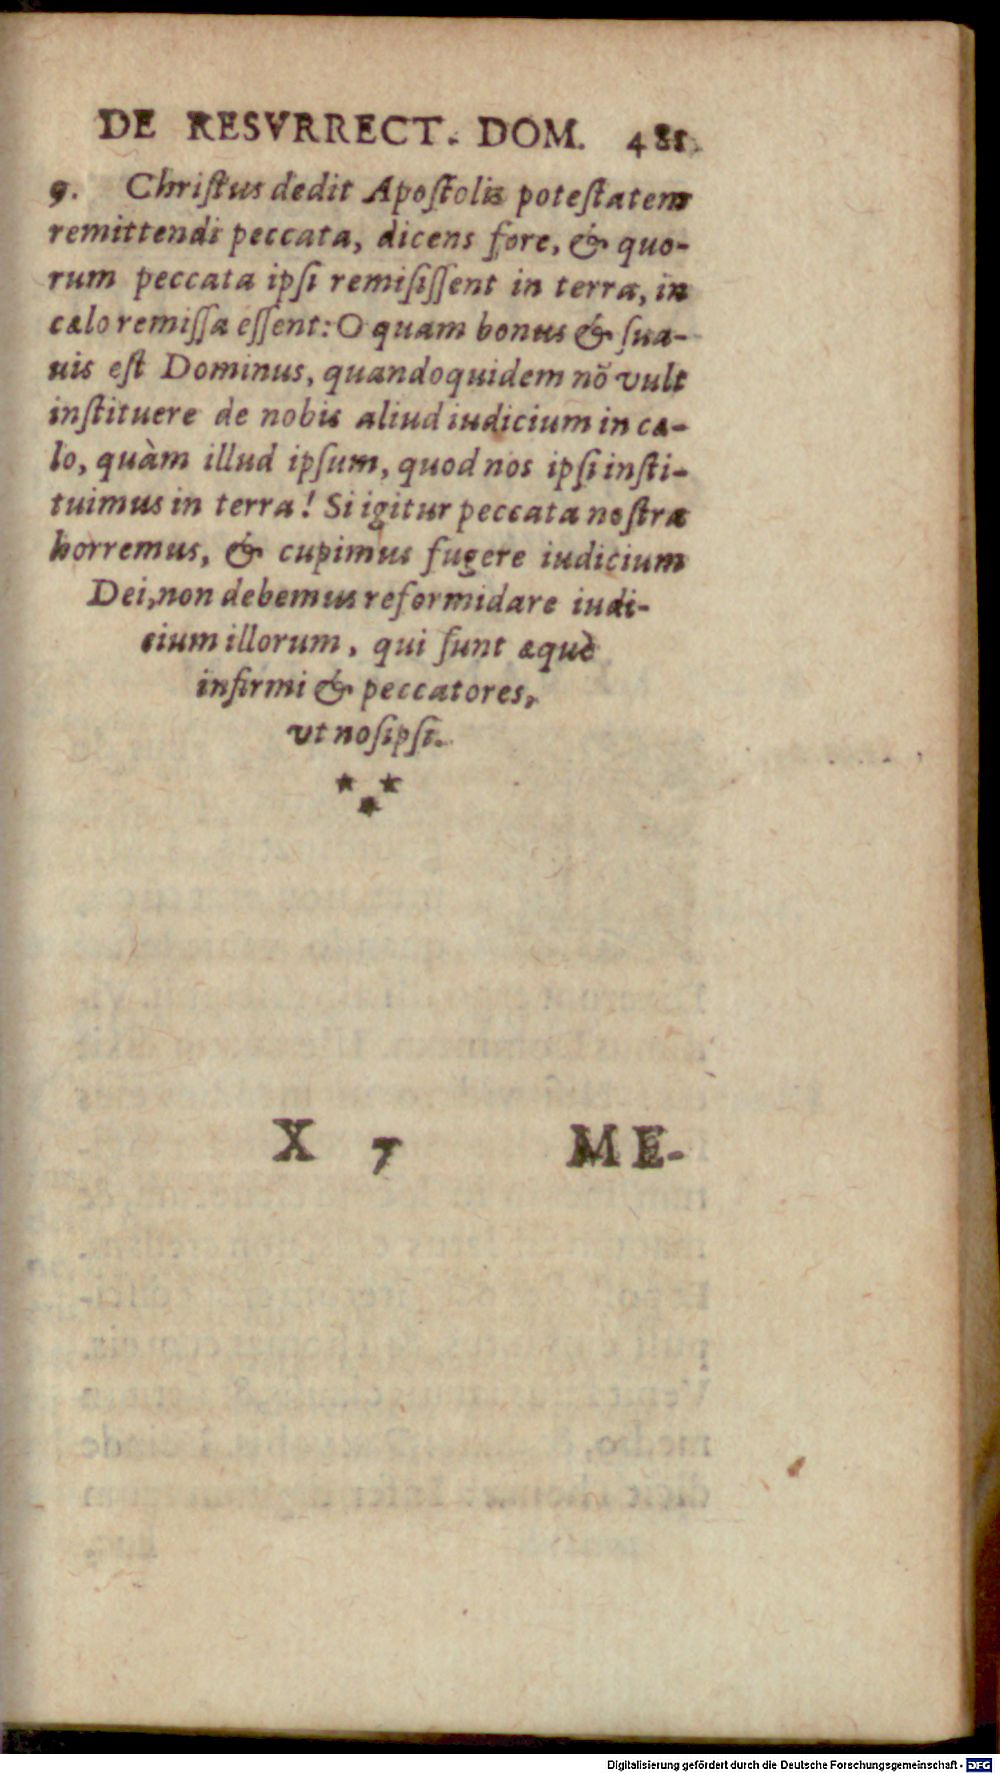 DE RESVRRECT. DOM. 481
9. Chriſtus dedit Apoſtolis poteſtatem
remittendi peccata, dicens fore, & quo-
rum peccata ipſi remiſiſſent in terra, in
cælo remiſſa eſſent: O quam bonus & ſua-
uis eſt Dominus, quandoquidem nõ vult
inſtituere de nobis aliud iudicium in cæ-
lo, quàm illud ipſum, quod nos ipſi inſti-
tuimus in terra! Si igitur peccata noſtra
horremus, & cupimus fugere iudicium
Dei, non debemus reformidare iudi-
cium illorum, qui ſunt æquè
infirmi & peccatores,
vt nosipſi.
X 7 ME-
Digitalisierung gefördert durch die Deutsche Forschungsgemeinschaft - DFG